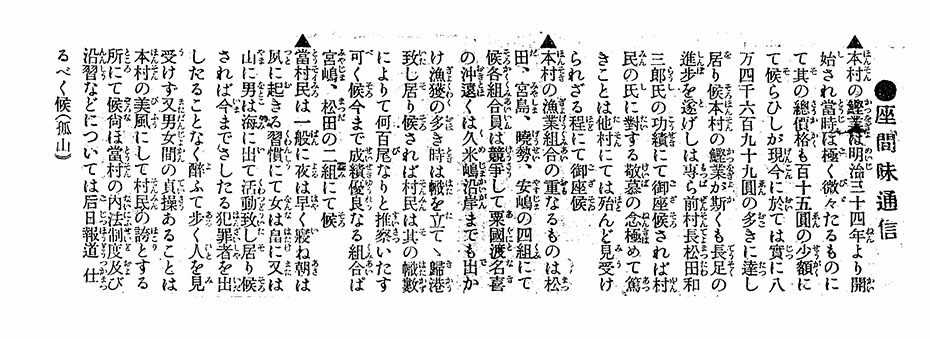 ●座間味通信
▲本村の鰹業は明治三十四年より開
始され當時は極く微々たるものに
て其の總價格も百十五圓の少額に
て候らひしが現今に於ては實に八
万四千六百九十九圓の多きに達し
居り候本村の鰹業が斯くも長足の
進歩を遂げしは専ら前村長松田和
三郎氏の功績にて御座候されば村
民の氏に對する敬慕の念極めて篤
きことは他村にては殆んど見受け
られざる程にて御座候
▲本村の漁業組合の重なるものは松
田、宮島、曉勢、安嶋の四組にて
候各組合員は競爭して粟國渡名喜
の沖遠くは久米嶋沿岸までも出か
け漁獲の多き時は幟を立てゝ歸港
致し居り候されば村民は其の幟數
によりて何百尾なりと推察いたす
可く候今まで成績優良なる組合は
宮嶋、松田の二組にて候
▲當村民は一般に夜は早く寢ね朝は
夙に起きる習慣にて女は畠に又は
山に男は海に出て活動致し居り候
されば今までさしたる犯罪者を出
したることなく醉ふて歩く人を見
受けず又男女間の貞操あることは
本村の美風にして村民の誇とする
所にて候尙ほ當村の内法制度及び
沿習などについては后日報道 仕
るべく候(孤山)